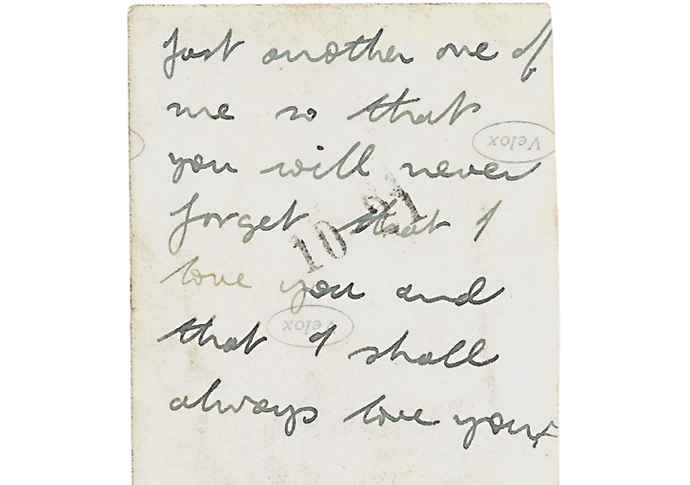 Just another one of
me so that
Velox
you will never
forget that I
10-21
love you and
Velox
that I shall
always love you